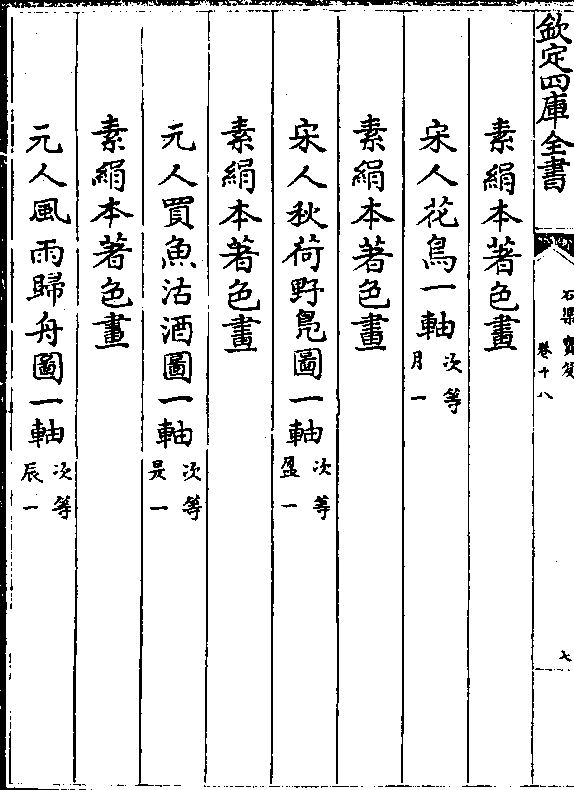 欽定四庫全書
石渠寳笈
卷十八
七
素絹本著色畫
宋人花鳥一軸次等月一
素絹本著色畫
宋人秋荷野鳬圖一軸次等盈一
素絹本著色畫
元人買魚沽酒圖一軸次等昃一
素絹本著色畫
元人風雨歸舟圖一軸次等辰一